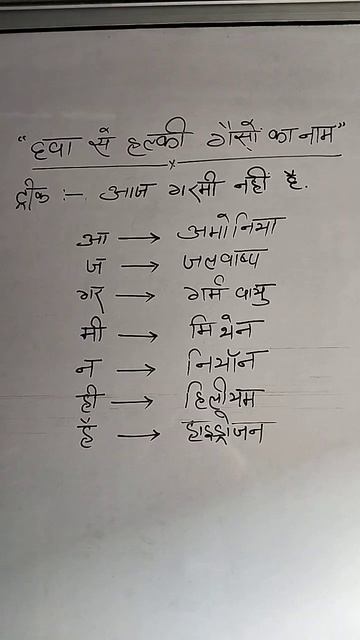 "हवा से हल्की गैसों का नाम"
ट्रीक :- आज गरमी नही है.
आ → अमोनिया
ज → जलवाष्प
गर → गर्म वायु
मी → मिथेन
न → नियॉन
ही → हिलीयम
है → हाइड्रोजन